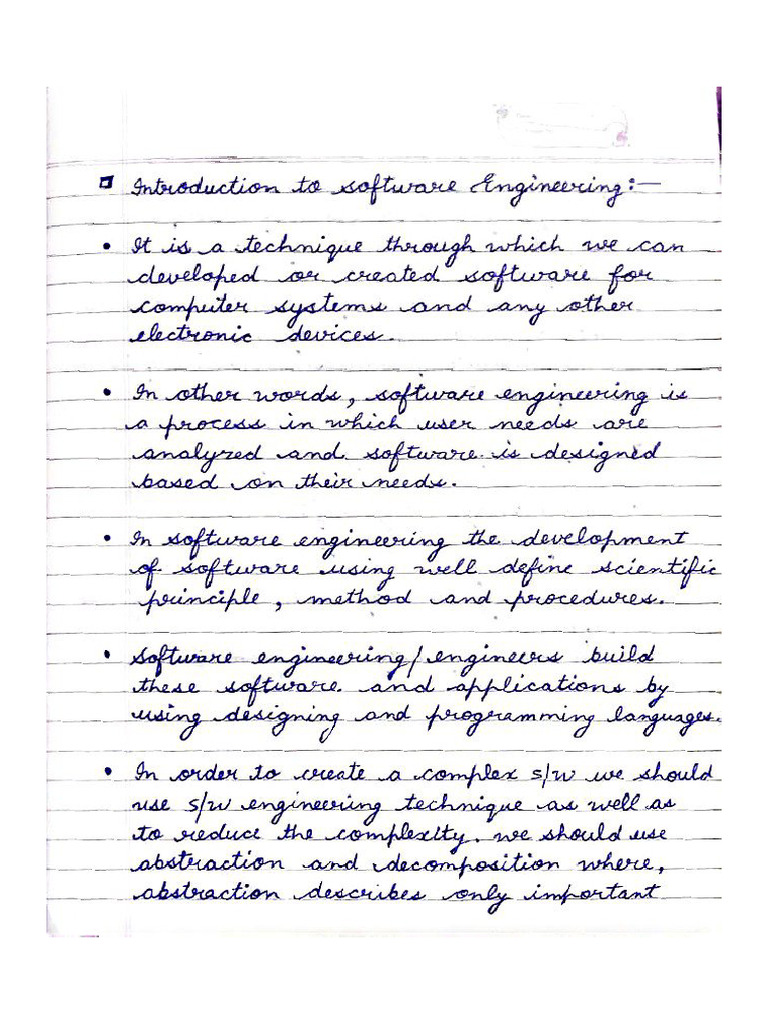 Introduction to software Engineering:-
• It is a technique through which we can
developed or created software for
computer systems and any other
electronic devices.
• In other words, software engineering is
a process in which user needs are
analyzed and software is designed
based on their needs.
• In software engineering the development
of software using well define scientific
principle, method and procedures.
• Software engineering/engineers build
these software and applications by
using designing and programming languages.
• In order to create a complex s/w we should
use s/w engineering technique as well as
to reduce the complexity. we should use
abstraction and decomposition where,
abstraction describes only important